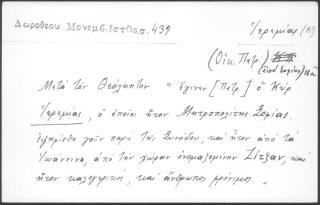 Δωροθέου Μονεμβ. Ιστ Θασ. 439
Ἱερεμίας (Α')
(Οἰκ. Πατρ.)
Μετὰ τὸν Θεόληπτον "ἔγινεν [Πατρ.] ὁ Κὺρ
Ἱερεμίας, ὁ ὁποῖος ἦτον Μητροπολίτης Σοφίας.
ἐψηφίσθη γοῦν παρὰ τῆς Συνόδου, καὶ ἦτον ἀπὸ τὰ
Ἰωάννινα, ἀπὸ τὴν χώραν ὀνομαζομένην Ζίτζαν, καὶ
ἦτον καλογερικὸς, καὶ ἄνθρωπος φρόνιμος."